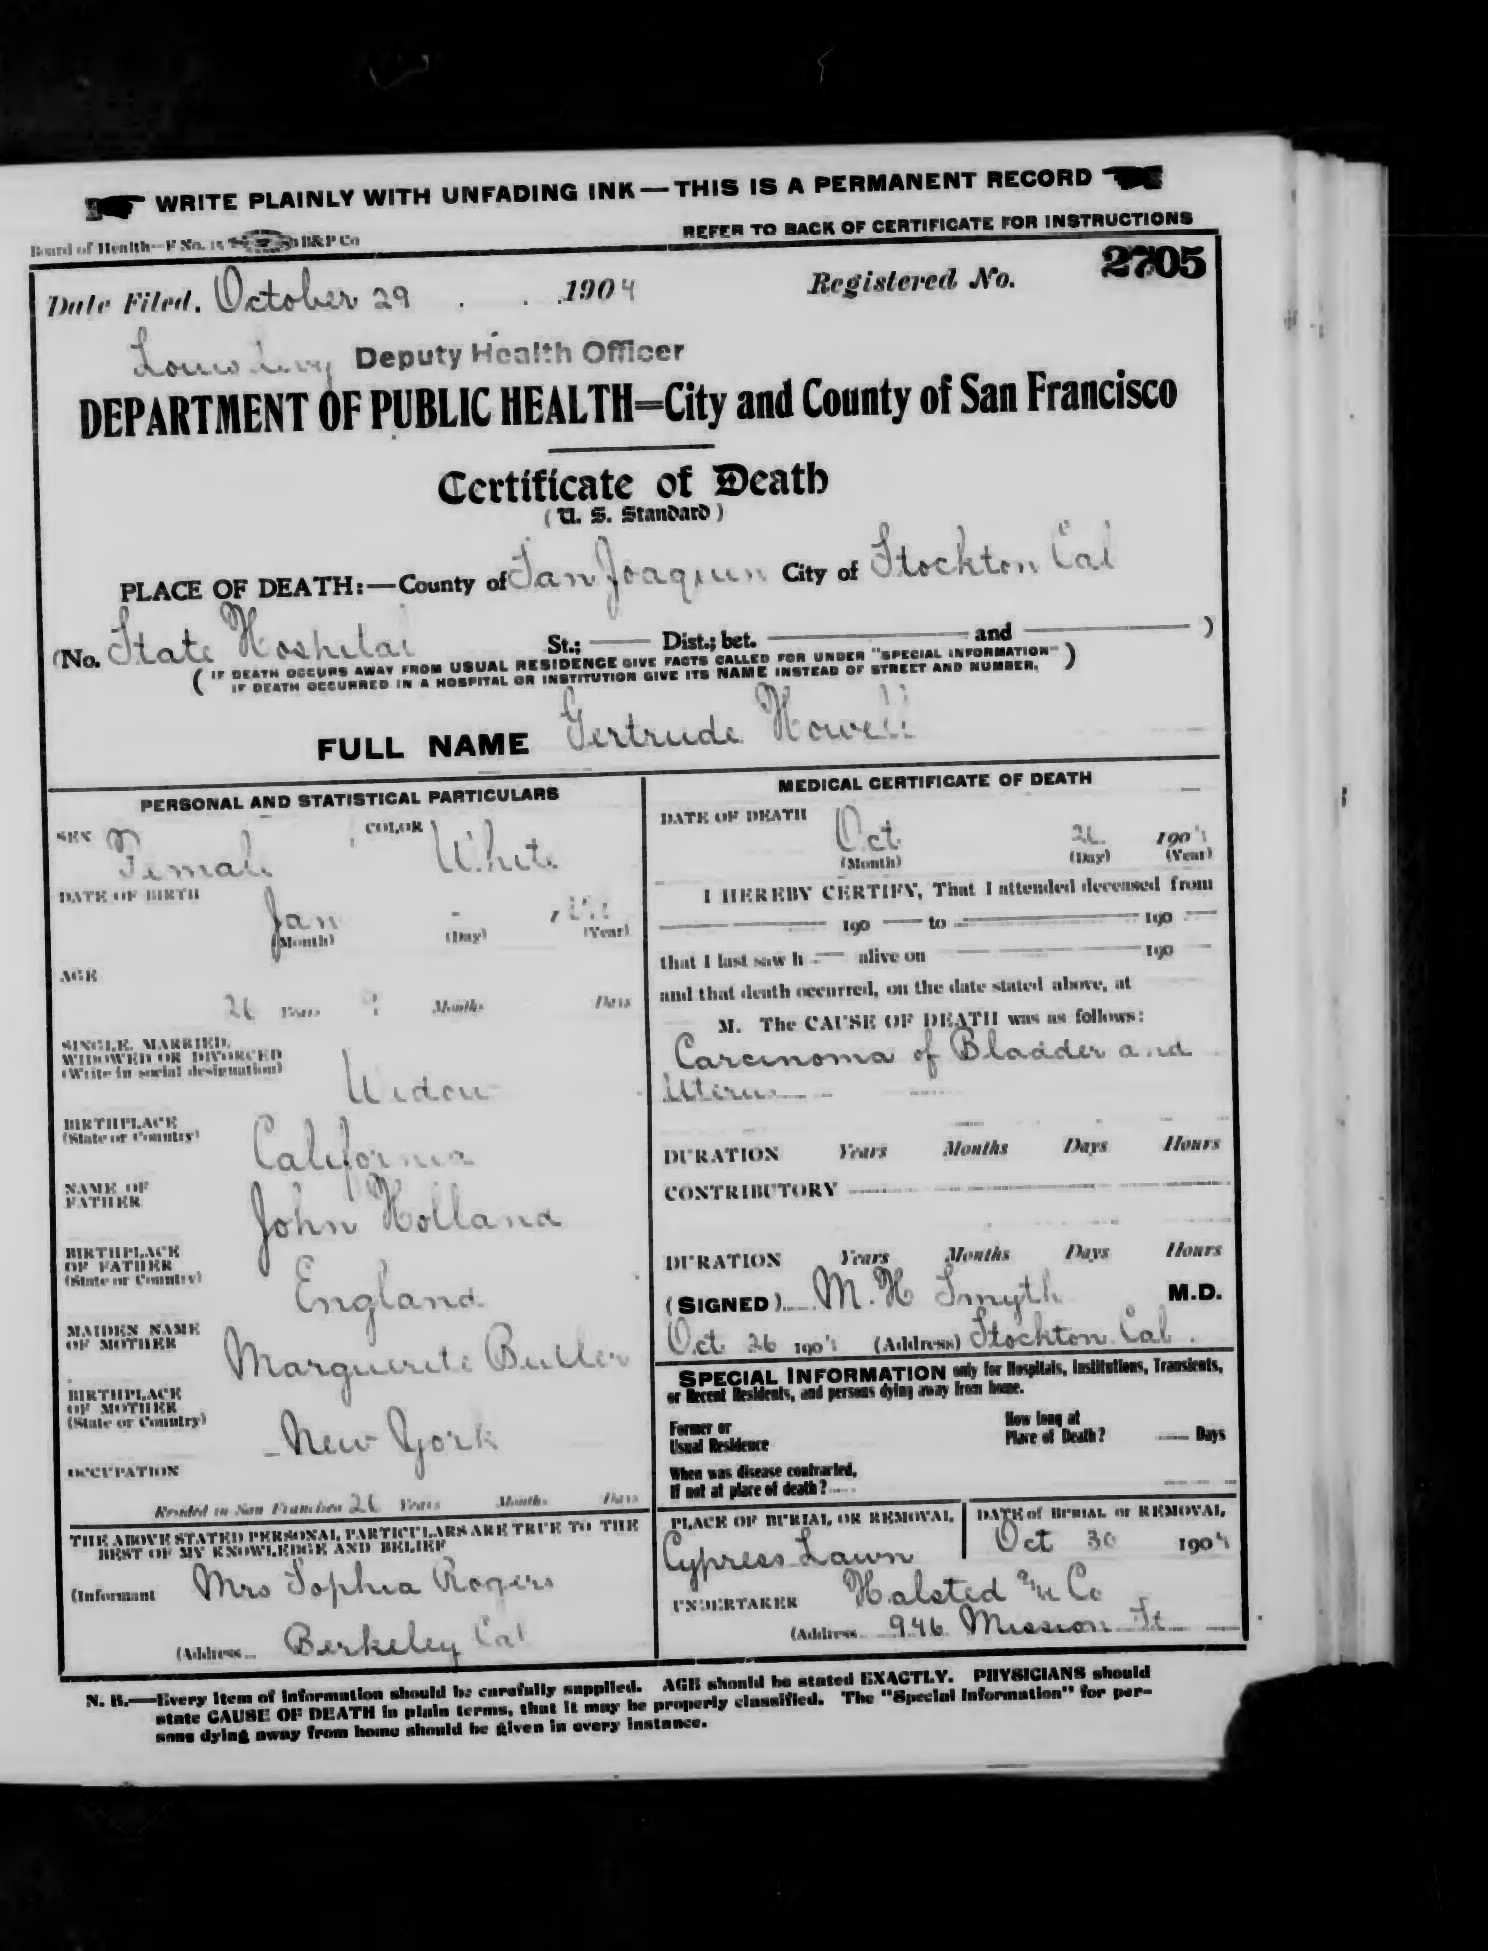 WRITE PLAINLY WITH UNFADING INK — THIS IS A PERMANENT RECORD
REFER TO BACK OF CERTIFICATE FOR INSTRUCTIONS
Board of Health—F No. 15 B&P Co
2705
Date Filed, October 29 1904 Registered No.
Louis Levy Deputy Health Officer
DEPARTMENT OF PUBLIC HEALTH=City and County of San Francisco
Certificate of Death
(U. S. Standard)
PLACE OF DEATH:—County of San Joaquin City of Stockton Cal
(No. State Hospital St.; Dist.; bet. and )
(IF DEATH OCCURS AWAY FROM USUAL RESIDENCE GIVE FACTS CALLED FOR UNDER "SPECIAL INFORMATION"
IF DEATH OCCURRED IN A HOSPITAL OR INSTITUTION GIVE ITS NAME INSTEAD OF STREET AND NUMBER.)
FULL NAME Gertrude Howell
PERSONAL AND STATISTICAL PARTICULARS
SEX Female COLOR White
DATE OF BIRTH Jan - 1
(Month) (Day) (Year)
AGE
26 Years 9 Months Days
SINGLE, MARRIED,
WIDOWED OR DIVORCED
(Write in social designation) Widow
BIRTHPLACE
(State or Country) California
NAME OF
FATHER John Holland
BIRTHPLACE
OF FATHER
(State or Country) England
MAIDEN NAME
OF MOTHER Marguerite Butler
BIRTHPLACE
OF MOTHER
(State or Country) New York
OCCUPATION
Resided in San Francisco 26 Years Months Days
THE ABOVE STATED PERSONAL PARTICULARS ARE TRUE TO THE
BEST OF MY KNOWLEDGE AND BELIEF
(Informant Mrs Sophia Rogers
(Address Berkeley Cal
MEDICAL CERTIFICATE OF DEATH
DATE OF DEATH Oct 26 1904
(Month) (Day) (Year)
I HEREBY CERTIFY, That I attended deceased from
190 to 190
that I last saw h alive on 190
and that death occurred, on the date stated above, at
M. The CAUSE OF DEATH was as follows:
Carcinoma of Bladder and
Uterus
DURATION Years Months Days Hours
CONTRIBUTORY
DURATION Years Months Days Hours
(SIGNED) M. H Smyth M.D.
Oct 26 1904 (Address) Stockton Cal.
SPECIAL INFORMATION only for Hospitals, Institutions, Transients,
or Recent Residents, and persons dying away from home.
Former or
Usual Residence
How long at
Place of Death? Days
When was disease contracted,
If not at place of death?
PLACE OF BURIAL OR REMOVAL, DATE of BURIAL or REMOVAL,
Cypress Lawn Oct 30 1904
UNDERTAKER Halsted & Co
(Address 946 Mission St
N. B.—Every item of information should be carefully supplied. AGE should be stated EXACTLY. PHYSICIANS should
state CAUSE OF DEATH in plain terms, that it may be properly classified. The "Special Information" for per-
sons dying away from home should be given in every instance.